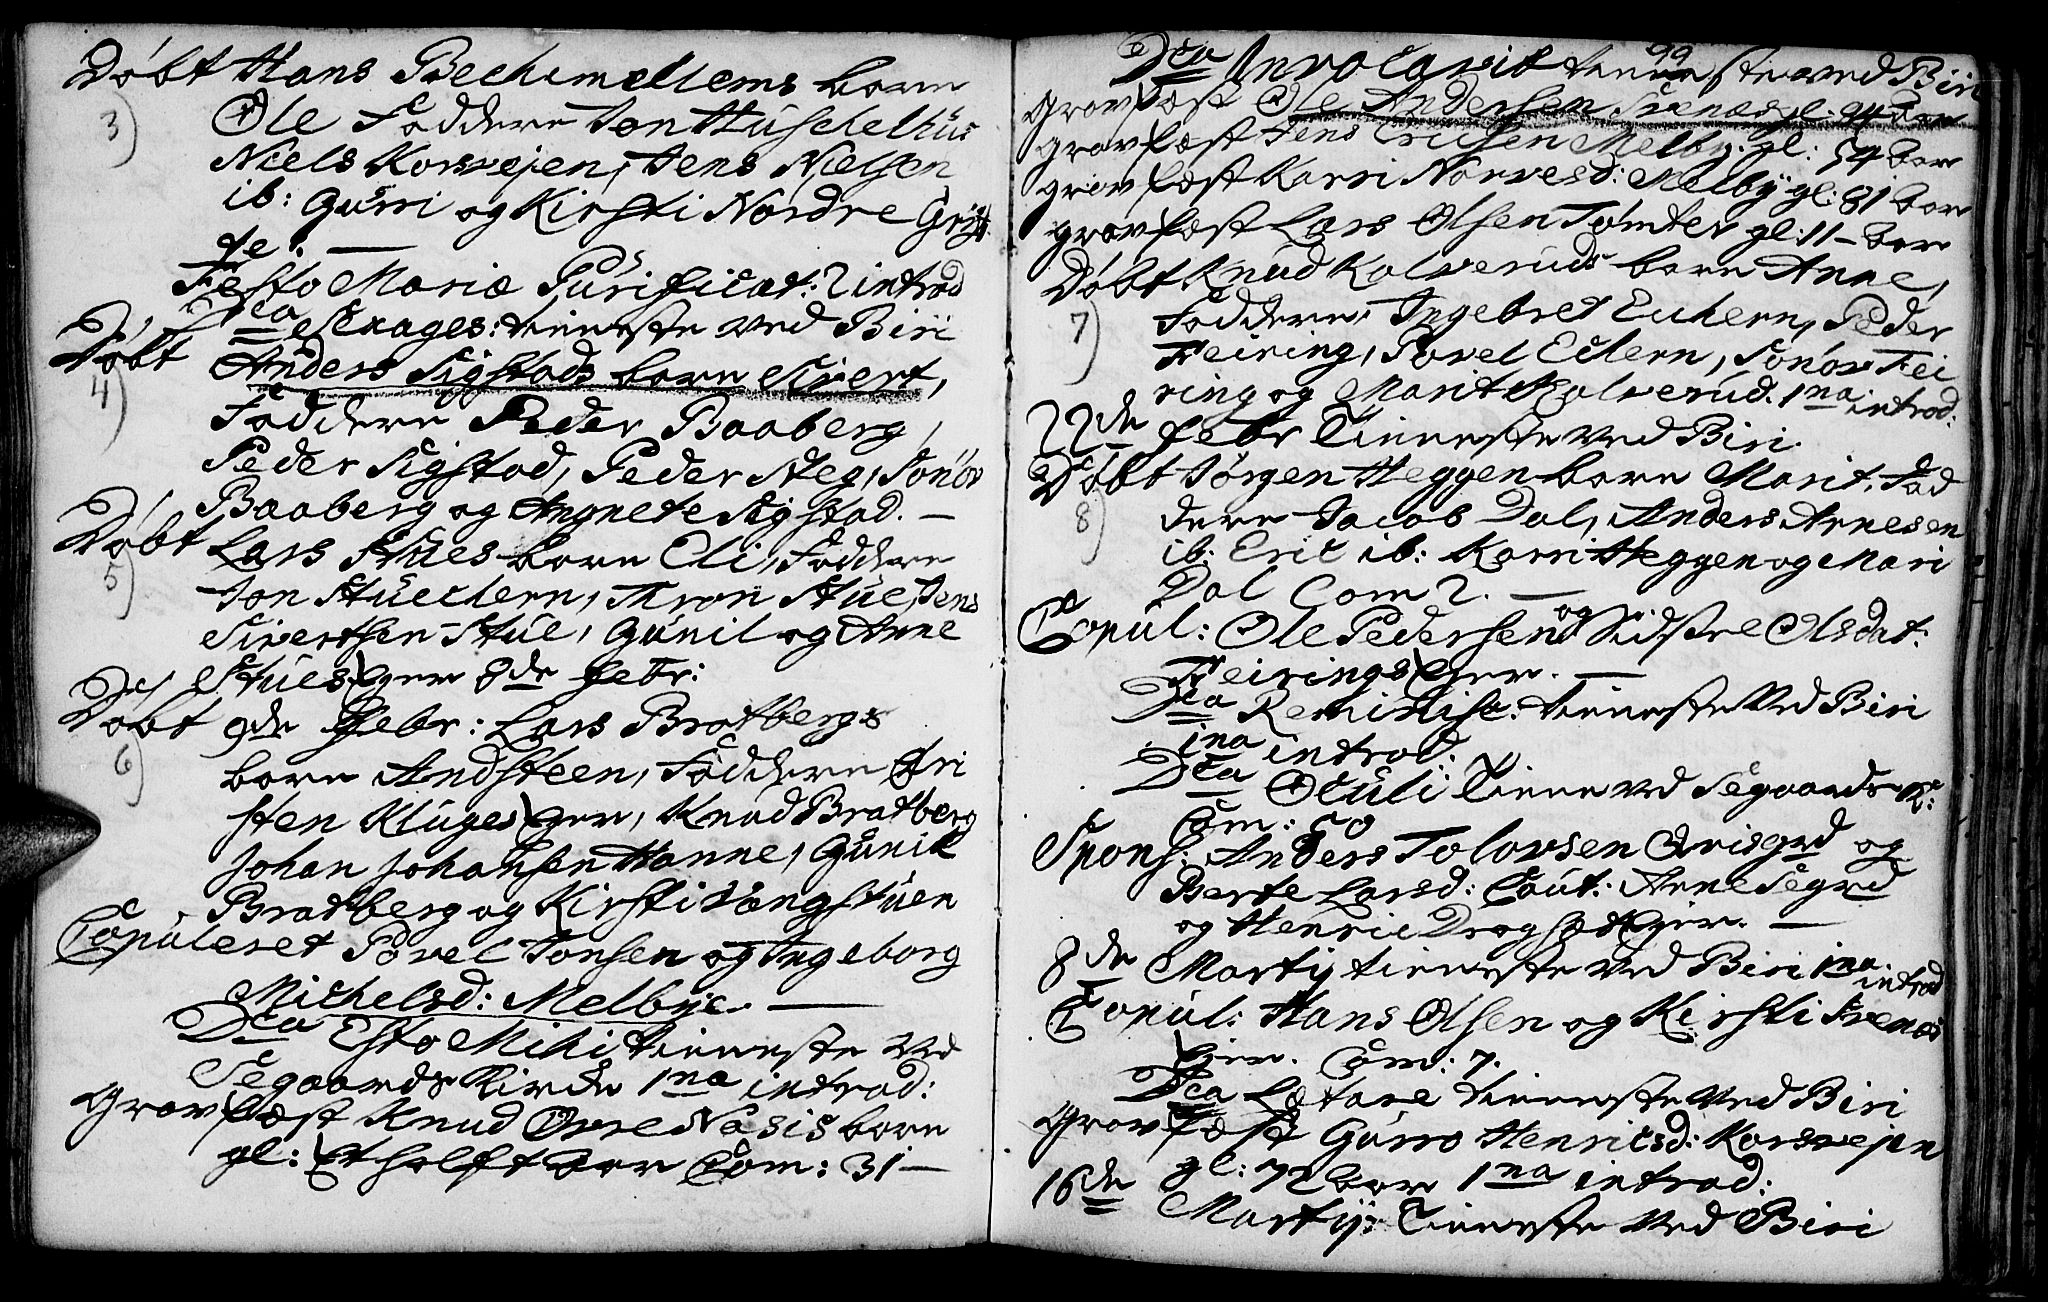 Døbt Hans Bechimellems barn
3) Ole Faddere Jon Huschelhus
Niels Korsvejen, Jens Nielsen
ib: Gurri og Kirsti Nordre Gryt
te. —
Festo Mariæ Purificat: 2 introd
Dca Sexages: tieneste ved Biri
Døbt Anders Sigstads barn Sivert,
4) Faddere Peder Baaberg,
Peder Sigstad, Peder Steg, Sønøv
Baaberg og Angnete Sigstad. —
Døbt Lars Stues barn Eli, Faddere
5) Jon Stuechern, Tron Stue, Jens
Sivertsen Stue, Gunil og Anne
Stues Ejer 8de Febr:
Døbt 9de Febr: Lars Bratbergs
6) barn Andsteen, Faddere Cri
sten Kluges Ejer, Knud Bratberg
Johan Johansen Hanne, Gunil
Bratberg og Kirsti Vangstuen
Copuleret Povel Jonsen og Ingeborg
Michelsd: Melbye. —
Dca Esto Mihi tieneste ved
Segaards Kirke 1na introd:
Gravfæst Knud Ovre Næsis barn
gl: Et halft aar Com: 31 —
99
Dca Invocavit tieneste ved Biri
Gravfæst Ole Andersen Svenes gl: 94 aar
gravfæst Jens Ericsen Melby gl: 54 aar
gravfæst Karri Norvesd: Melby gl: 81 aar
gravfæst Lars Olsen Tømter gl: 11 – aar
Døbt Knud Kalveruds barn Anne,
7) Faddere, Ingebret Euchern, Peder
Feiring, Povel Echern, Sønøv Fei
ring og Marit Kalverud. 1na introd:
22de Febr Tieneste ved Biri.
Døbt Jørgen Heggen barn Marit, Fad
8) dere Jacob Dal, Anders Arnesen
ib: Eric ib: Karri Heggen og Mari
Dal Com 2. —
Copul: Ole Pedersen og Sidsele Olsdat:
Feirings Ejer. —
Dca Reminisc: tieneste ved Biri
1na introd:
Dca Oculi Tiene ved Segaards K:
Com: 50
Spons: Anders Tolovsen Qvisgrd og
Berte Larsd: Caut: Arne Segrd
og Henric Dragsæt Ejer. —
8de Martij tieneste ved Biri 1na introd
Copul: Hans Olsen og Kirsti Svenæs
Ejer. Com: 7.
Dca Lætare tieneste ved Biri
Gravfæst Gurro Henricsd: Korsvejen
gl: 72 aar 1na introd:
16de Martij: Tieneste ved Biri